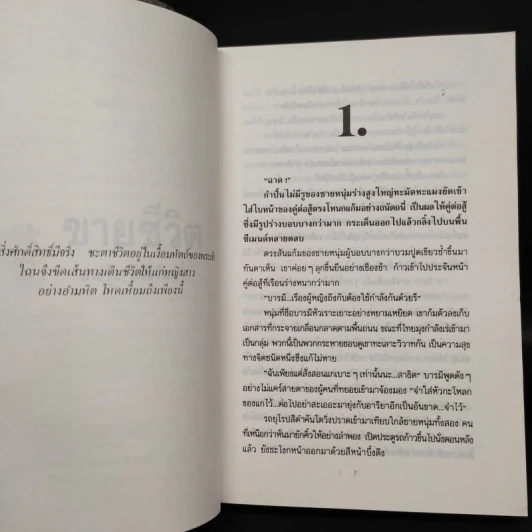 ขายชีวิต
สิ่งศักดิ์สิทธิ์มีจริง ชะตาชีวิตอยู่ในเงื้อมหัตถ์ของพระเจ้า
ไฉนจึงขีดเส้นทางเดินชีวิตให้แก่หญิงสาว
อย่างอำมหิต โหดเหี้ยมถึงเพียงนี้
1.
"ฉาด !"
กำปั้นไม่มีรูของชายหนุ่มร่างสูงใหญ่ทะมัดทะแมงยัดเข้า
ใส่ใบหน้าของคู่ต่อสู้ตรงโหนกแก้มอย่างถนัดถนี่ เป็นผลให้คู่ต่อสู้
ซึ่งมีรูปร่างบอบบางกว่ามาก กระเด็นออกไปแล้วกลิ้งไปบนพื้น
ซีเมนต์หลายตลบ
ตรงสันแก้มของชายหนุ่มผู้บอบบางกว่าบวมปูดเขียวช้ำขึ้นมา
ทันตาเห็น เขาค่อย ๆ ลุกขึ้นยืนอย่างเชื่องช้า ก้าวเข้าไปประจันหน้า
คู่ต่อสู้ที่เรือนร่างหนากว่ามาก
"บารมี...เรื่องผู้หญิงถึงกับต้องใช้กำลังกันด้วยรึ"
หนุ่มที่ชื่อบารมีหัวเราะเยาะอย่างหยามเหยียด เขาก้มตัวลงเก็บ
เอกสารที่กระจายเกลื่อนกลาดตามพื้นถนน ขณะที่ไทยมุงกำลังเร่เข้ามา
เป็นกลุ่ม พวกนี้เป็นพวกกระหายชอบดูเขาทะเลาะวิวาทกัน เป็นความสุข
ทางจิตชนิดหนึ่งซึ่งแก้ไม่หาย
"ฉันเพียงแต่สั่งสอนแกเบาะ ๆ เท่านั้นนะ...สาธิต" บารมีพูดดัง ๆ
อย่างไม่แคร์สายตาของผู้คนที่ทยอยเข้ามาจ้องมอง "จำใส่หัวกะโหลก
ของแกไว้...ต่อไปอย่าสะเออะมายุ่งกับอาริยาอีกเป็นอันขาด...จำไว้"
รถยุโรปสีดำคันโตวิ่งปราดเข้ามาเทียบใกล้ชายหนุ่มทั้งสอง คน
ที่เหนือกว่าหันมายักคิ้วให้อย่างลำพอง เปิดประตูรถก้าวขึ้นไปนั่งตอนหลัง
แล้ว ยังชะโงกหน้าออกมาด้วยสีหน้าบึ้งตึง
7